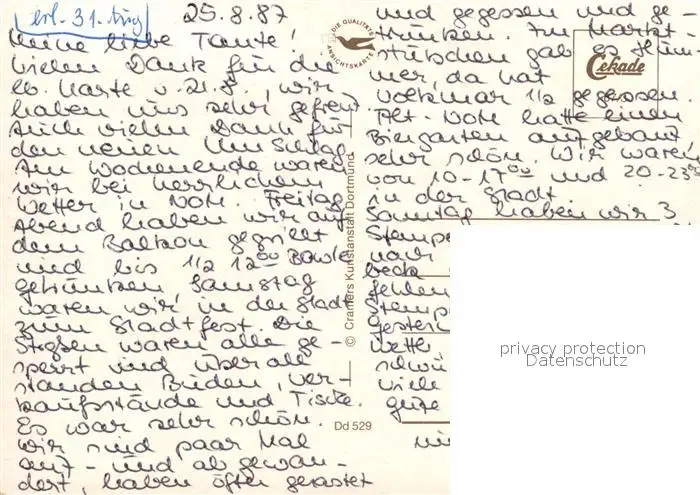 erl. 31. Aug
25.8.87
Meine liebe Tante!
Vielen Dank für die
lb. Karte v. 21.8., wir
haben uns sehr gefreut.
Auch vielen Dank für
den neuen Umschlag.
Am Wochenende waren
wir bei herrlichem
Wetter in NOM. Freitag
Abend haben wir auf
dem Balkon gegrillt
und bis 1/2 12°° Bowle
getrunken Samstag
waren wir in der Stadt
zum Stadtfest. Die
Straßen waren alle ge-
sperrt und überall
standen Buden, Ver-
kaufsstände und Tische.
Es war sehr schön.
Wir sind paar Mal
auf- und ab gewan-
dert, haben öfter gerastet
und gegessen und ge-
trunken. Im Markt-
stübchen gab es Hum-
mer, da hat
Volkmar 1/2 gegessen.
Alt-NOM hatte einen
Biergarten aufgebaut
sehr schön. Wir waren
von 10-17°° und 20-23°°
in der Stadt.
Sonntag haben wir 3
Stempe
nach
beck
fehlen
Stemp
Gestern
Wette
schwü
viele
gute
DIE QUALITÄTS
ANSICHTSKARTE
Cekade
© Cramers Kunstanstalt Dortmund
Dd 529
privacy protection
Datenschutz